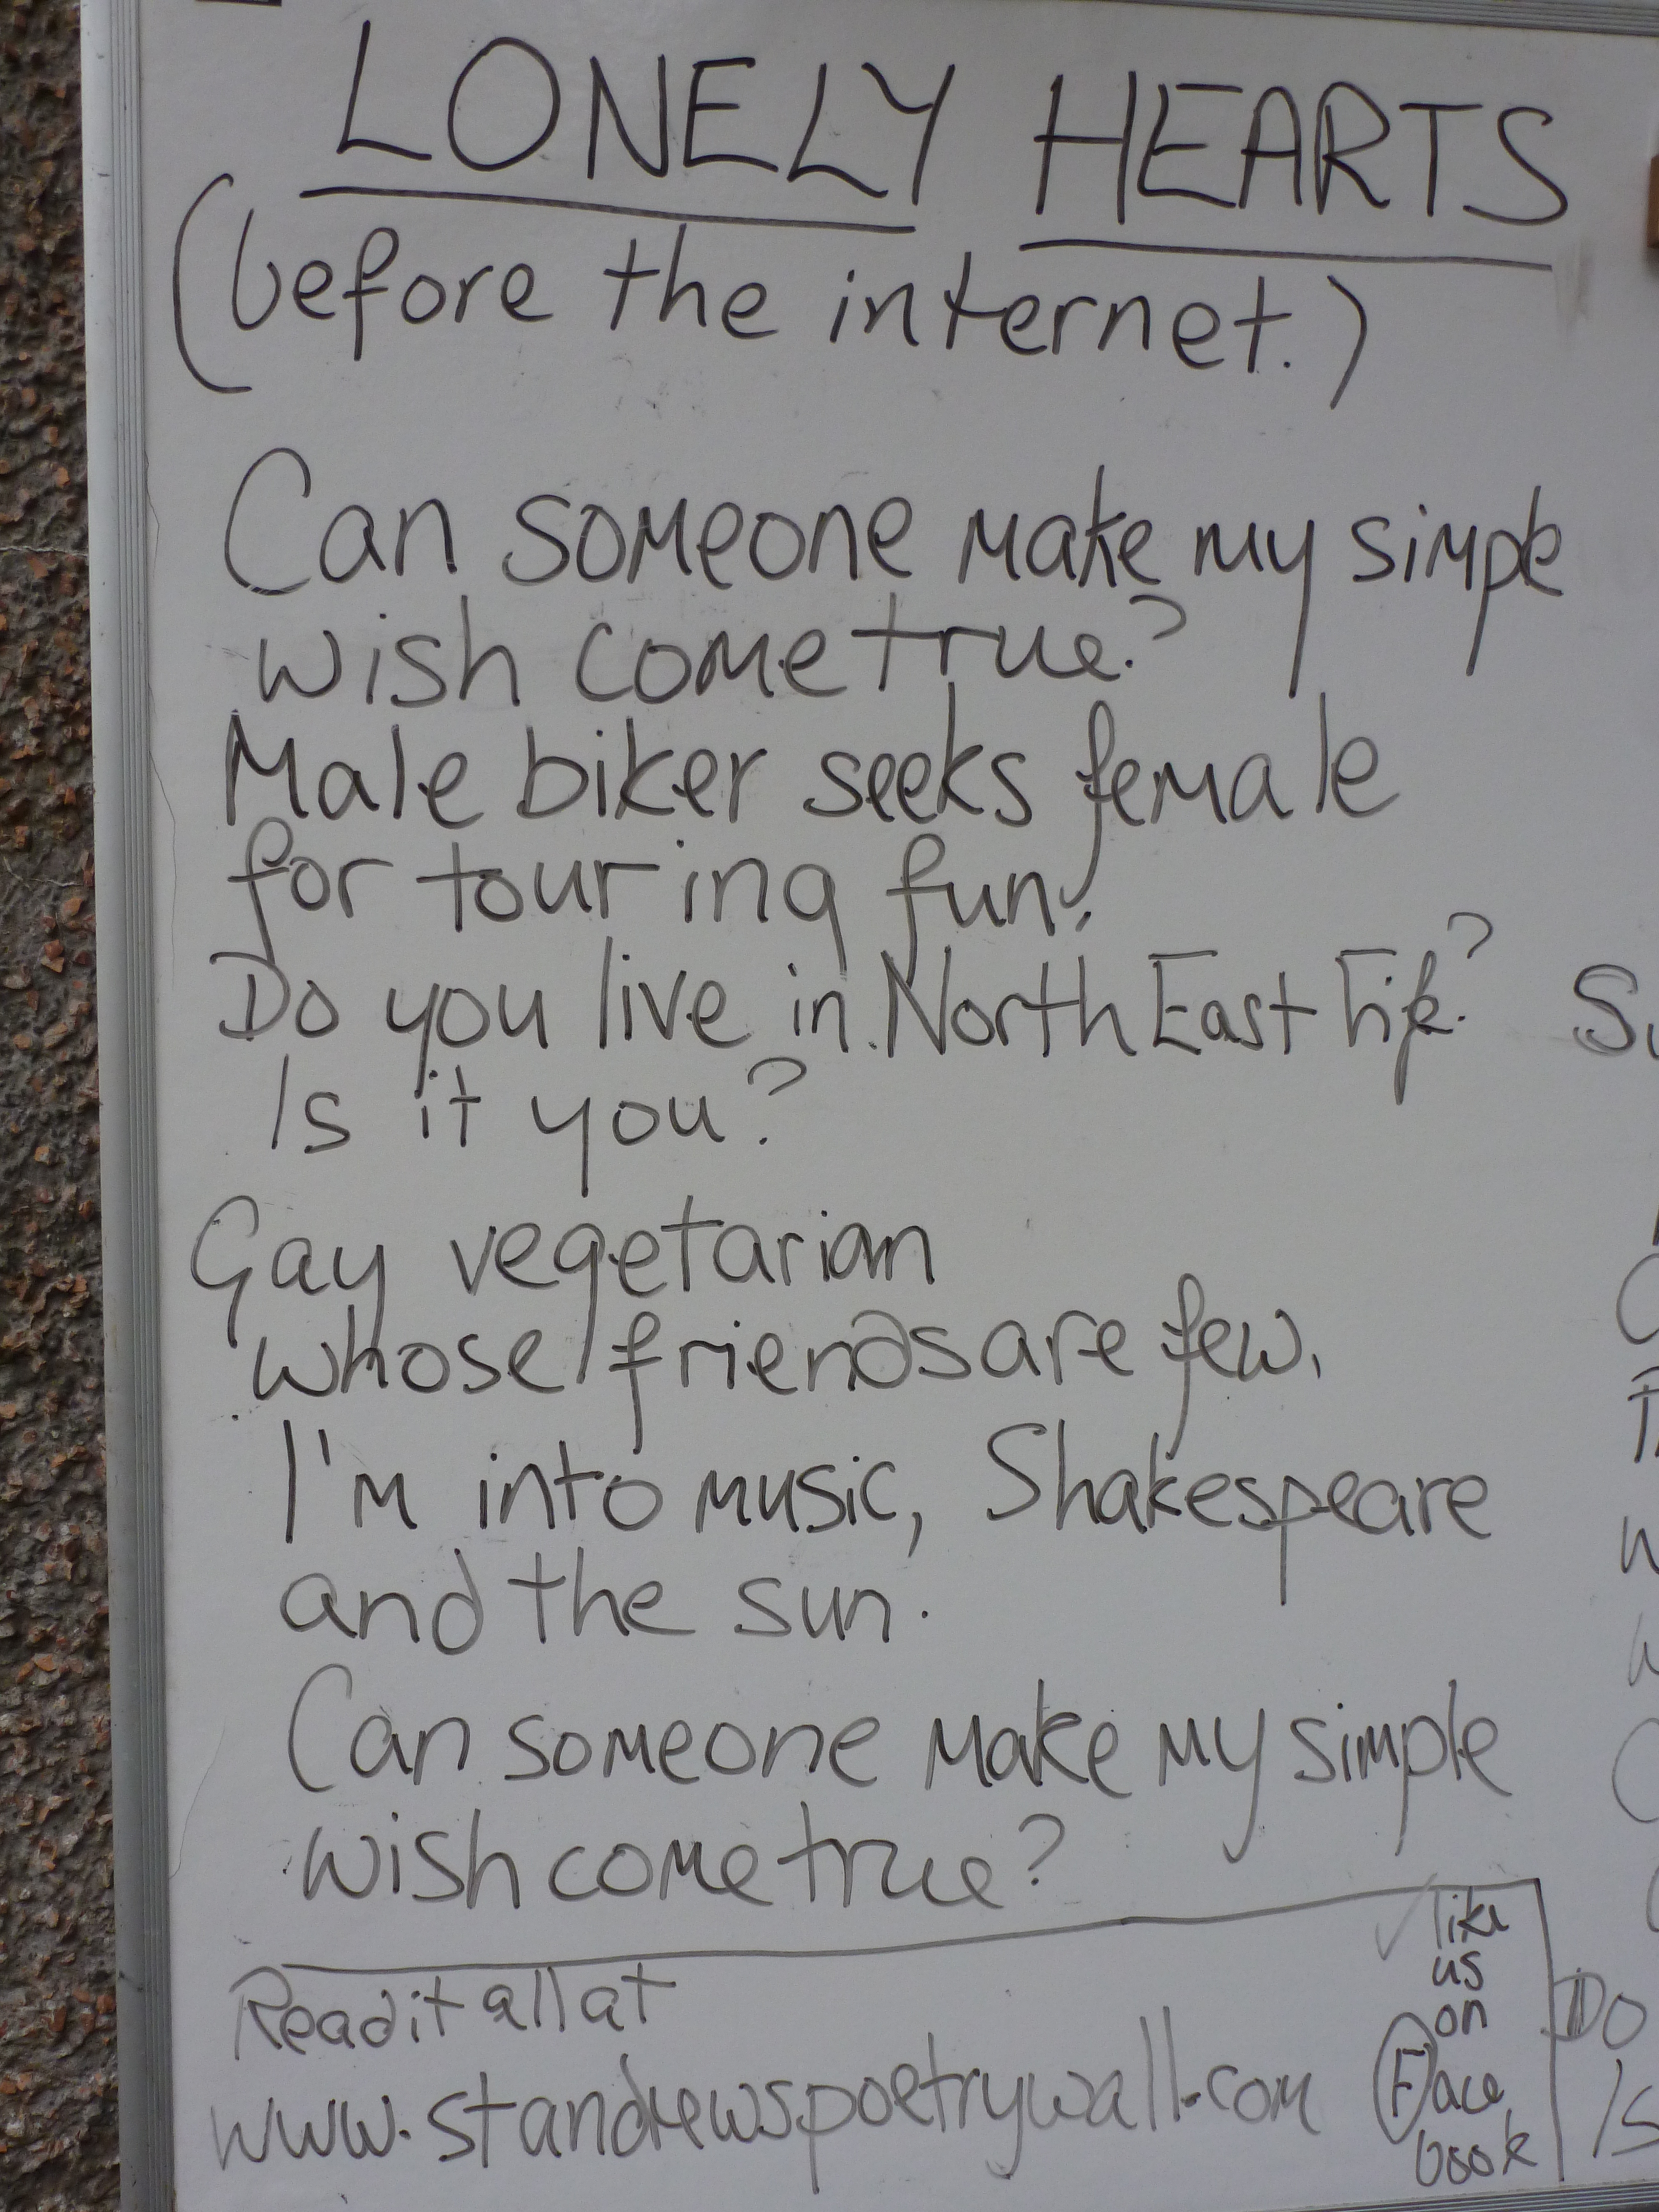 LONELY HEARTS
(before the internet.)
Can someone make my simple
wish come true?
Male biker seeks female
for touring fun.
Do you live in North East Fife?
Is it you?
Gay vegetarian
whose friends are few,
I'm into music, Shakespeare
and the sun.
Can someone make my simple
wish come true?
Read it all at
www.standrewspoetrywall.com
like
us
on
Face
book
Do
Is